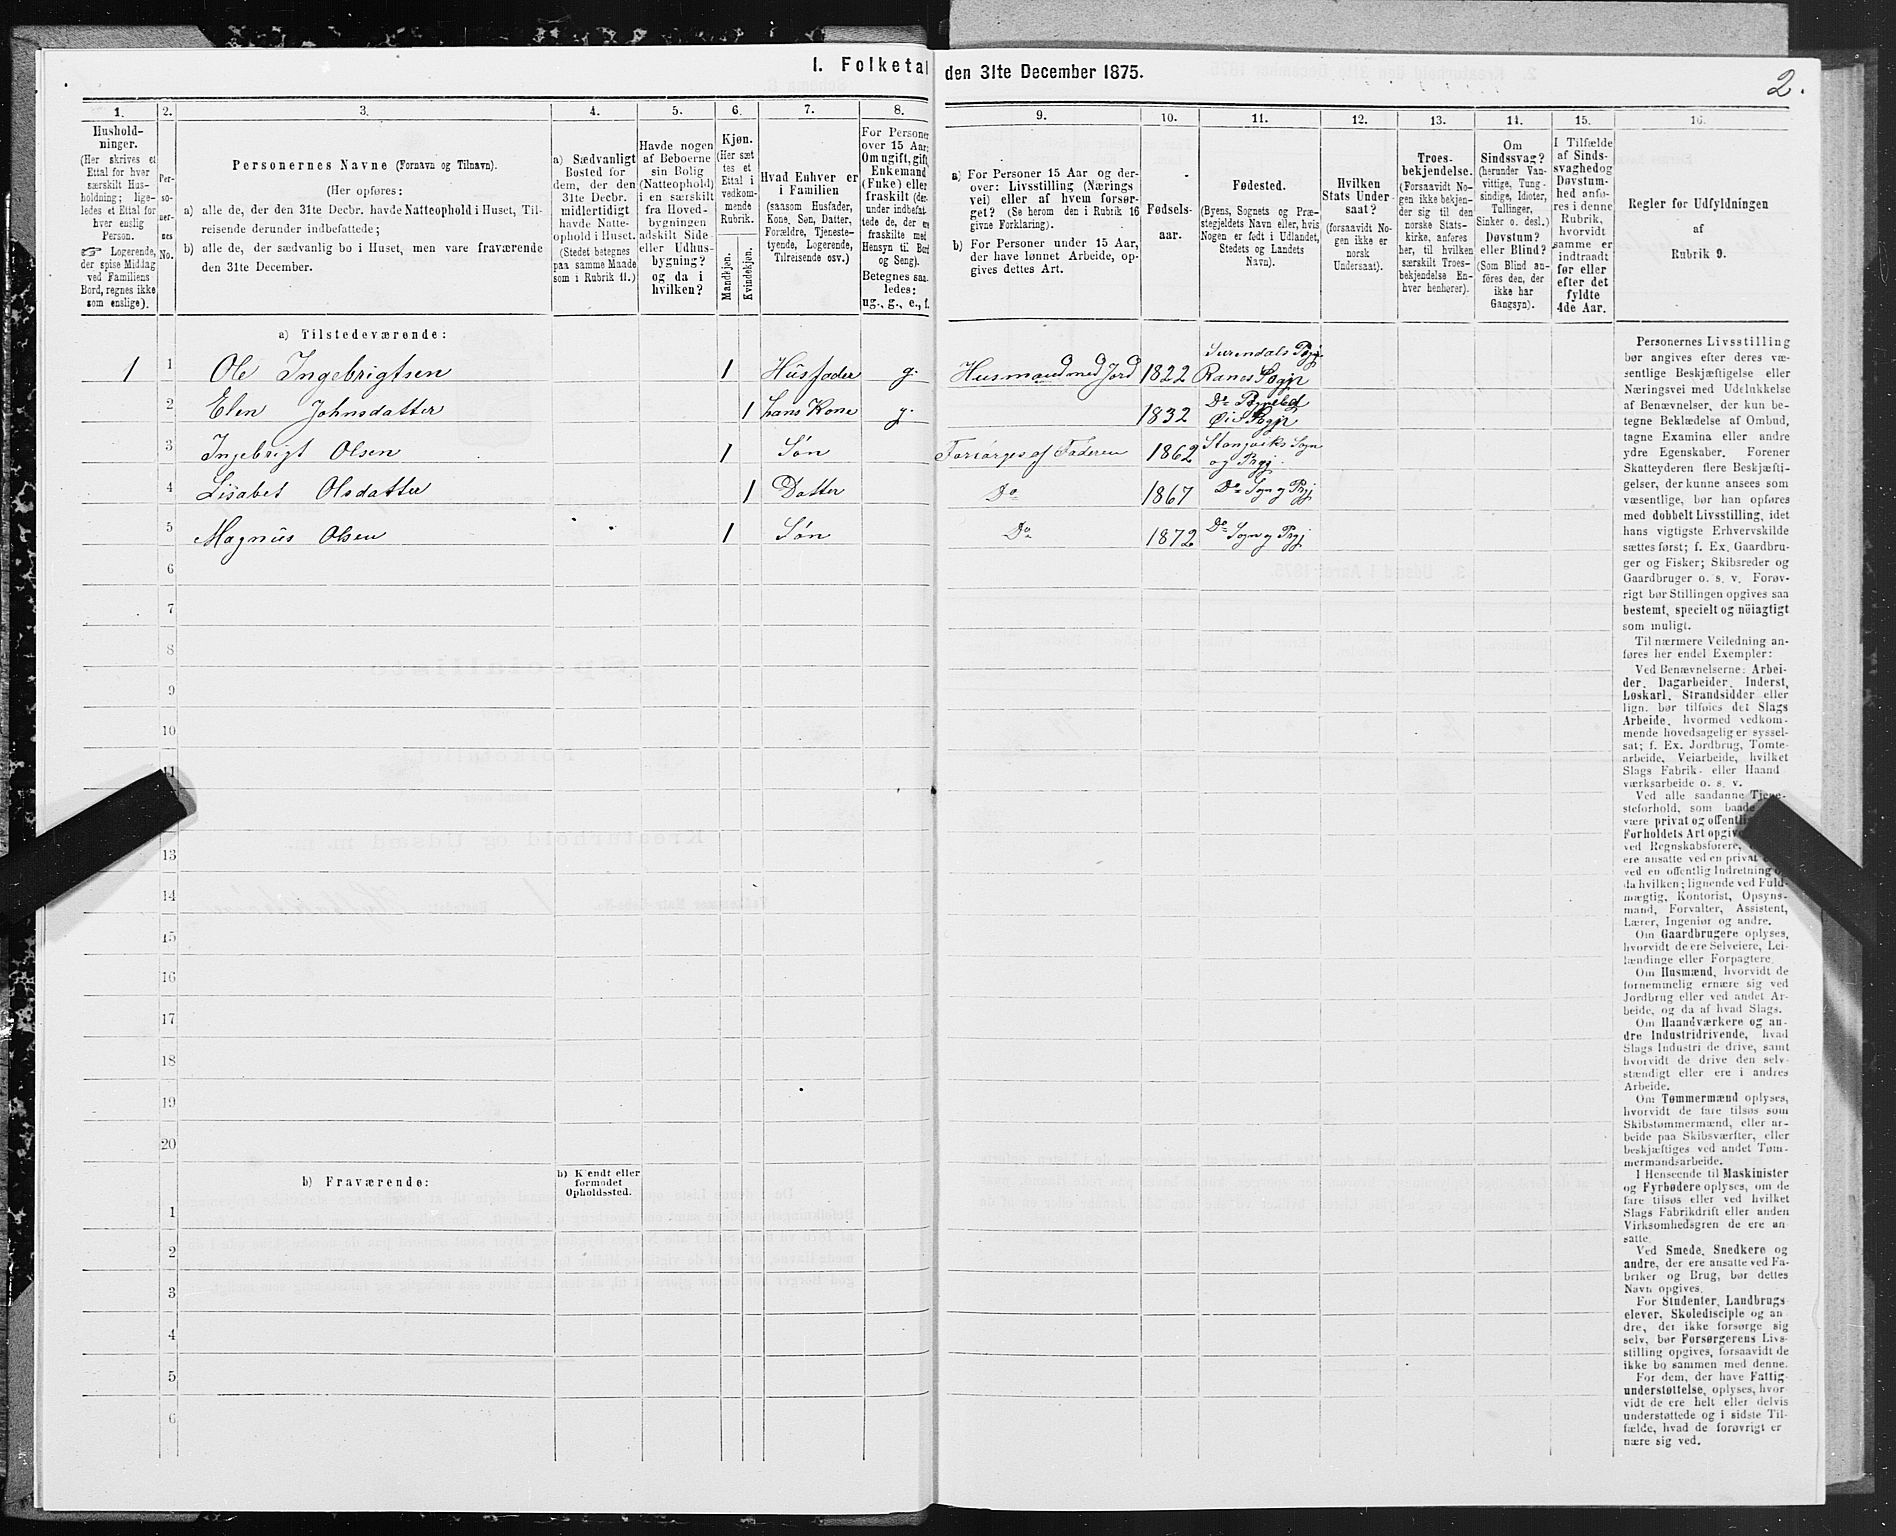 I. Folketal den 31te December 1875.
2.
1.
Hushold-
ninger.
(Her skrives et
Ettal for hver
særskilt Hus-
holdning; lige-
ledes et Ettal for
hver enslig
Person.
☞ Logerende,
der spise Middag
ved Familiens
Bord, regnes ikke
som enslige).
2.
Per-
so-
ner-
nes
No.
3.
Personernes Navne (Fornavn og Tilnavn).
(Her opføres:
a) alle de, der den 31te Decbr. havde Natteophold i Huset, Til-
reisende derunder indbefattede;
b) alle de, der sædvanlig bo i Huset, men vare fraværende
den 31te December.
4.
a) Sædvanligt
Bosted for
dem, der den
31te Decbr.
midlertidigt
havde Natte-
ophold i Huset.
(Stedet betegnes
paa samme Maade
som i Rubrik 11.)
5.
Havde nogen
af Beboerne
sin Bolig
(Natteophold)
i en særskilt
fra Hoved-
bygningen
adskilt Side-
eller Udhus-
bygning?
og da i
hvilken?
6.
Kjøn.
(Her sæt
tes et
Ettal i
vedkom-
mende
Rubrik.
Mandkjøn.
Kvindekjøn.
7.
Hvad Enhver er
i Familien
(saasom Husfader,
Kone, Søn, Datter,
Forældre, Tjeneste-
tyende, Logerende,
Tilreisende osv.)
8.
For Personer
over 15 Aar:
Om ugift, gift,
Enkemand
(Enke) eller
fraskilt (der-
under indbefat-
tede de, der ere
fraskilte med
Hensyn til Bord
og Seng).
Betegnes saa-
ledes:
ug., g., e., f.
9.
a) For Personer 15 Aar og der-
over: Livsstilling (Nærings
vei) eller af hvem forsør-
get? (Se herom den i Rubrik 16
givne Forklaring).
b) For Personer under 15 Aar,
der have lønnet Arbeide, op-
gives dettes Art.
10.
Fødsels-
aar.
11.
Fødested.
(Byens, Sognets og Præ-
stegjeldets Navn eller, hvis
Nogen er født i Udlandet,
Stedets og Landets
Navn).
12.
Hvilken
Stats Under-
saat?
(forsaavidt No-
gen ikke er
norsk
Undersaat).
13.
Troes-
bekjendelse.
(Forsaavidt No-
gen ikke bekjen-
der sig til den
norske Stats-
kirke, anføres
her, til hvilken
særskilt Troes-
bekjendelse En-
hver henhører).
14.
Om
Sindssvag?
(herunder Van-
vittige, Tung-
sindige, Idioter,
Tullinger,
Sinker o. desl.)
Døvstum?
eller Blind?
(Som Blind an-
føres den, der
ikke har
Gangsyn).
15.
I Tilfælde
af Sinds-
svaghed og
Døvstum-
hed anfø-
res i denne
Rubrik,
hvorvidt
samme er
indtraadt
før eller
efter det
fyldte
4de Aar.
16.
Regler for Udfyldningen
af
Rubrik 9.
a) Tilstedeværende:
1 1 Ole Ingebrigtsen 1 Husfader g. Husmand med Jord 1822 Surendals Prgj Ranes Sogn
2 Elen Johnsdatter 1 hans Kone g. 1832 Do
3 Ingebrigt Olsen 1 Søn Forsørges af Faderen 1862 Stangviks Sogn og Prgj.
4 Lisabet Olsdatter 1 Datter Do 1867 Do Sogn og Prgj
5 Magnus Olsen 1 Søn Do 1872 Do Sogn og Prgj
6
7
8
9
10
11
13
14
15
16
17
18
19
20
b) Fraværende:
b) Kjendt eller
formodet
Opholdssted.
1
2
3
4
5
6
Personernes Livsstilling
bør angives efter deres væ-
sentlige Beskjæftigelse eller
Næringsvei med Udelukkelse
af Benævnelser, der kun be-
tegne Beklædelse af Ombud,
tagne Examina eller andre
ydre Egenskaber. Forener
Skatteyderen flere Beskjæfti-
gelser, der kunne ansees som
væsentlige, bør han opføres
med dobbelt Livsstilling, idet
hans vigtigste Erhvervskilde
sættes først; f. Ex. Gaardbru-
ger og Fisker; Skibsreder og
Gaardbruger o. s. v. Forøv-
rigt bør Stillingen opgives saa
bestemt, specielt og nöiagtigt
som muligt.
Til nærmere Veiledning an-
føres her endel Exempler:
Ved Benævnelserne: Arbei-
der, Dagarbeider, Inderst,
Løskarl, Strandsidder eller
lign. bør tilføies det Slags
Arbeide, hvormed vedkom-
mende hovedsagelig er syssel-
sat; f. Ex. Jordbrug, Tomte-
arbeide, Veiarbeide, hvilket
Slags Fabrik- eller Haand
værksarbeide o. s. v.
Ved alle saadanne Tjene-
steforhold, som baade
være privat og offentlig
Forholdets Art opgiv
ved Regnskabsførere,
ere ansatte ved en privat
ved en offentlig Indretning
da hvilken; lignende ved Fuld-
mægtig, Kontorist, Opsyns-
mand, Forvalter, Assistent,
Lærer, Ingeniør og andre.
Om Gaardbrugere oplyses,
hvorvidt de ere Selveiere, Lei-
lændinge eller Forpagtere.
Om Husmænd, hvorvidt de
fornemmelig ernære sig ved
Jordbrug eller ved andet Ar-
beide, og da af hvad Slags.
Om Haandværkere og an-
dre Industridrivende, hvad
Slags Industri de drive, samt
hvorvidt de drive den selv-
stændigt eller ere i andres
Arbeide.
Om Tømmermænd oplyses,
hvorvidt de fare tilsøs som
Skibstømmermænd, eller ar-
beide paa Skibsværfter, eller
beskjæftiges ved andet Tøm-
mermandsarbeide.
I Henseende til Maskinister
og Fyrbødere oplyses, om de
fare tilsøs eller ved hvilket
Slags Fabrikdrift eller anden
Virksomhedsgren de ere an-
satte.
Ved Smede, Snedkere og
andre, der ere ansatte ved Fa-
briker og Brug, bør dettes
Navn opgives.
For Studenter, Landbrugs
elever, Skoledisciple og an-
dre, der ikke forsørge sig
selv, bør Forsørgerens Livs-
stilling opgives, forsaavidt de
ikke bo sammen med denne.
For dem, der have Fattig-
understøttelse, oplyses, hvor-
vidt de ere helt eller delvis
understøttede og i sidste Til-
fælde, hvad de forøvrigt er
nære sig ved.